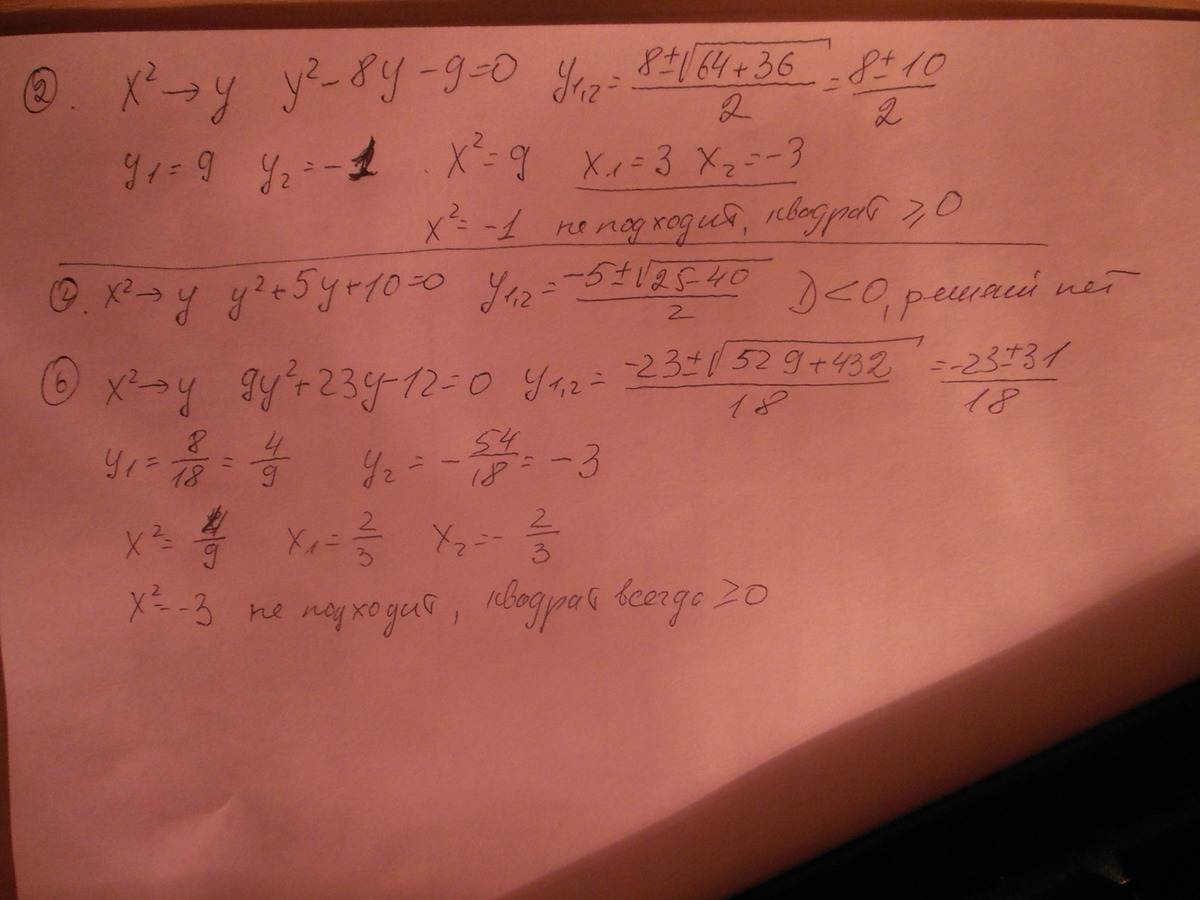 ②. x² → y y² - 8y - 9 = 0 y₁,₂ = (8 ± √(64 + 36))/2 = (8 ± 10)/2
y₁ = 9 y₂ = -1 . x² = 9 x₁ = 3 x₂ = -3
x² = -1 не подходит, квадрат ≥ 0
x² → y y² + 5y + 10 = 0 y₁,₂ = (-5 ± √(25 - 40))/2 D < 0, решений нет
⑥ x² → y 9y² + 23y - 12 = 0 y₁,₂ = (-23 ± √(529 + 432))/18 = (-23 ± 31)/18
y₁ = 8/18 = 4/9 y₂ = -54/18 = -3
x² = 4/9 x₁ = 2/3 x₂ = -2/3
x² = -3 не подходит, квадрат всегда ≥ 0